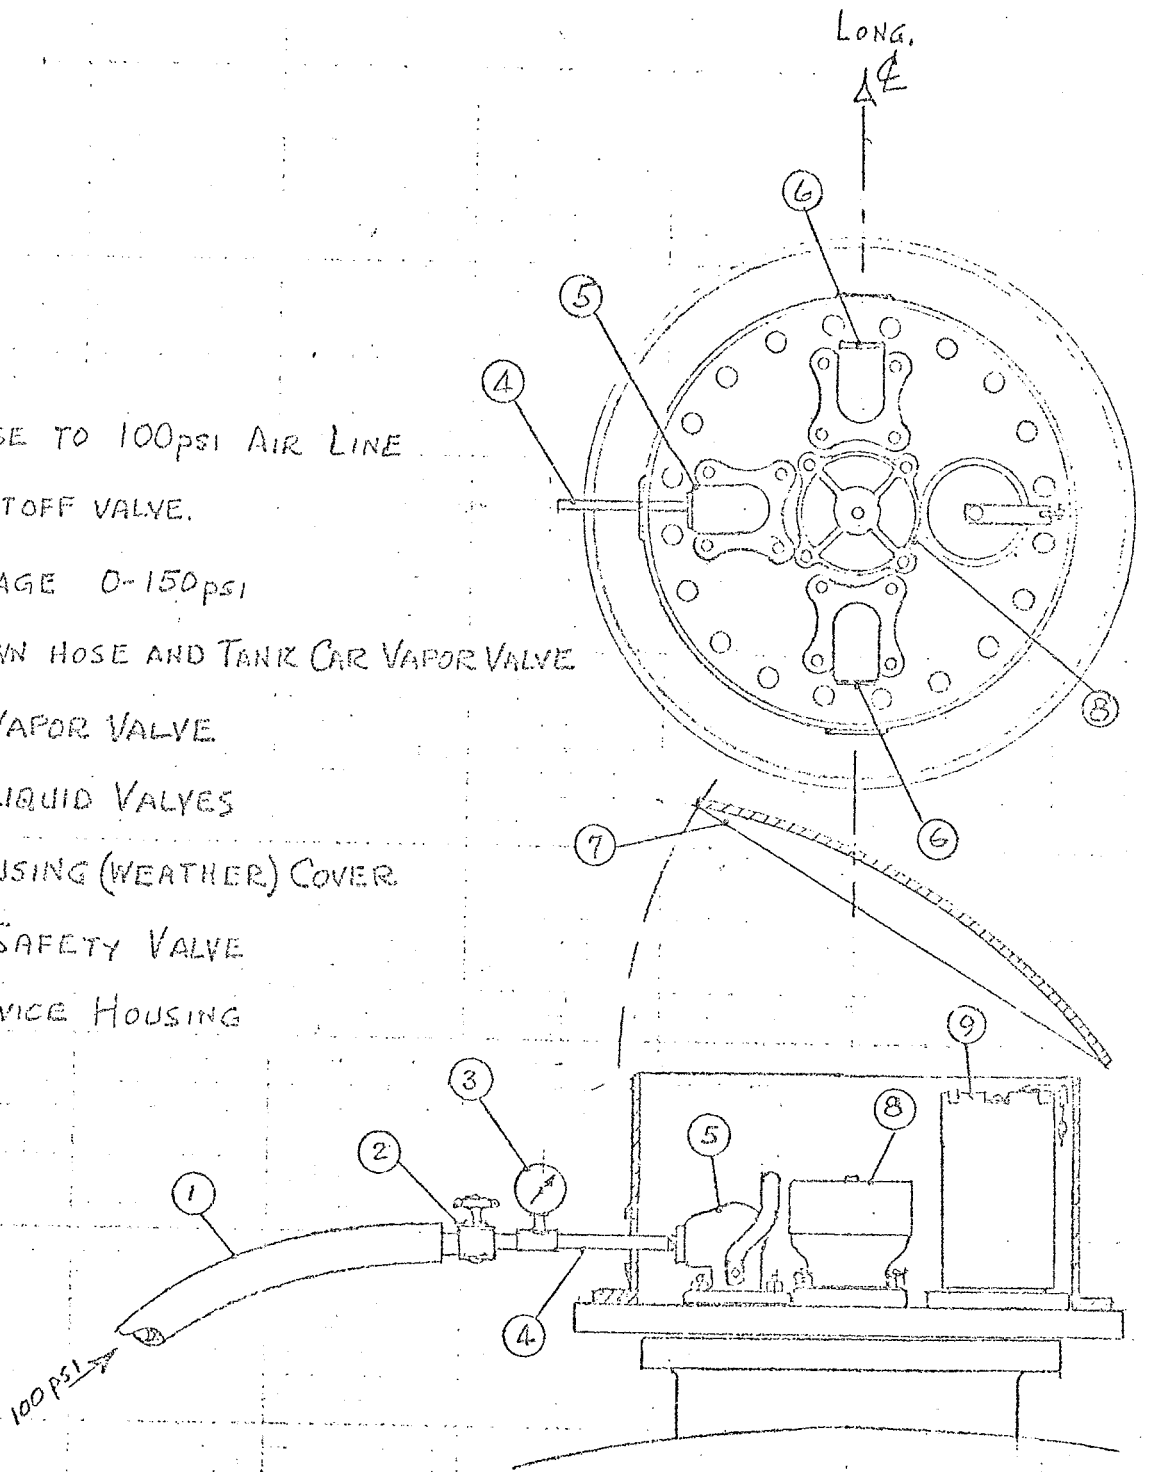 LONG.
℄
6
5
4
SE TO 100psi AIR LINE
TOFF VALVE.
AGE 0-150psi
WN HOSE AND TANK CAR VAPOR VALVE
VAPOR VALVE
8
LIQUID VALVES
7
6
USING (WEATHER) COVER
SAFETY VALVE
VICE HOUSING
9
3
8
5
2
1
4
100 psi